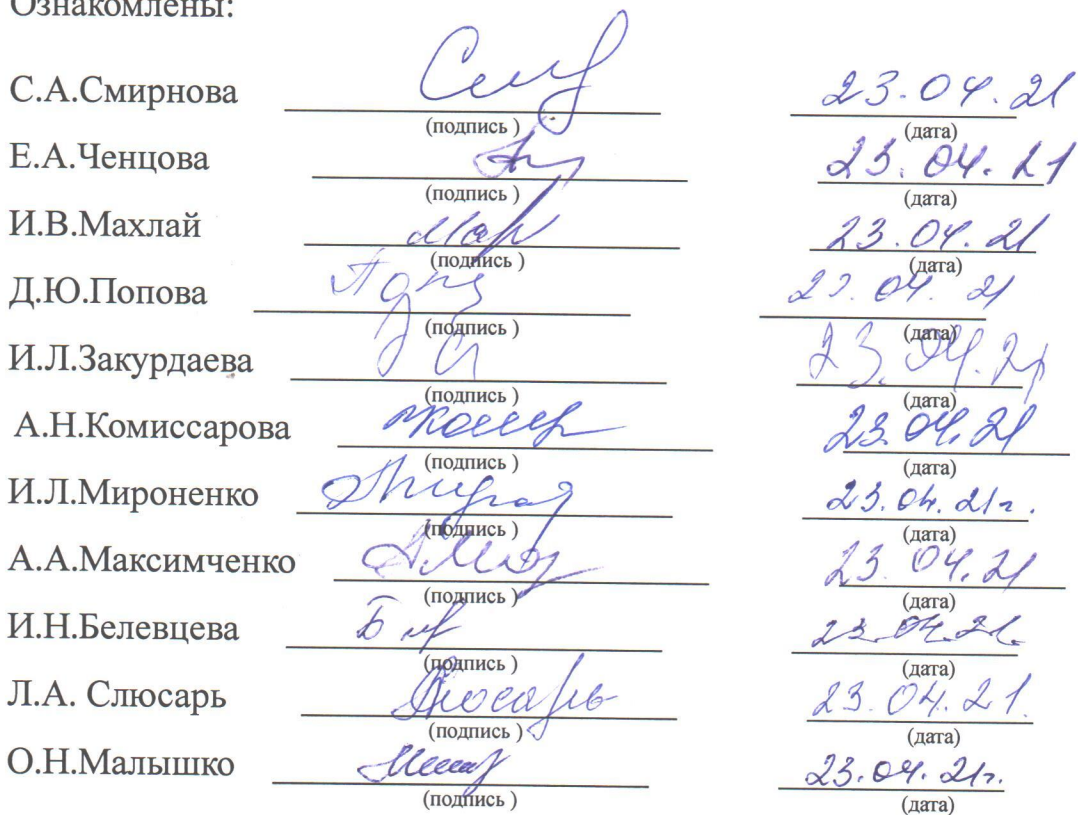 Ознакомлены:
С.А.Смирнова 23.04.21
(подпись ) (дата)
Е.А.Ченцова 23.04.21
(подпись ) (дата)
И.В.Махлай 23.04.21
(подпись ) (дата)
Д.Ю.Попова 23.04.21
(подпись ) (дата)
И.Л.Закурдаева 23.04.21
(подпись ) (дата)
А.Н.Комиссарова 23.04.21
(подпись ) (дата)
И.Л.Мироненко 23.04.21г.
(подпись ) (дата)
А.А.Максимченко 23.04.21
(подпись ) (дата)
И.Н.Белевцева 23.04.21.
(подпись ) (дата)
Л.А. Слюсарь Слюсарь 23.04.21.
(подпись ) (дата)
О.Н.Малышко 23.04.21г.
(подпись ) (дата)